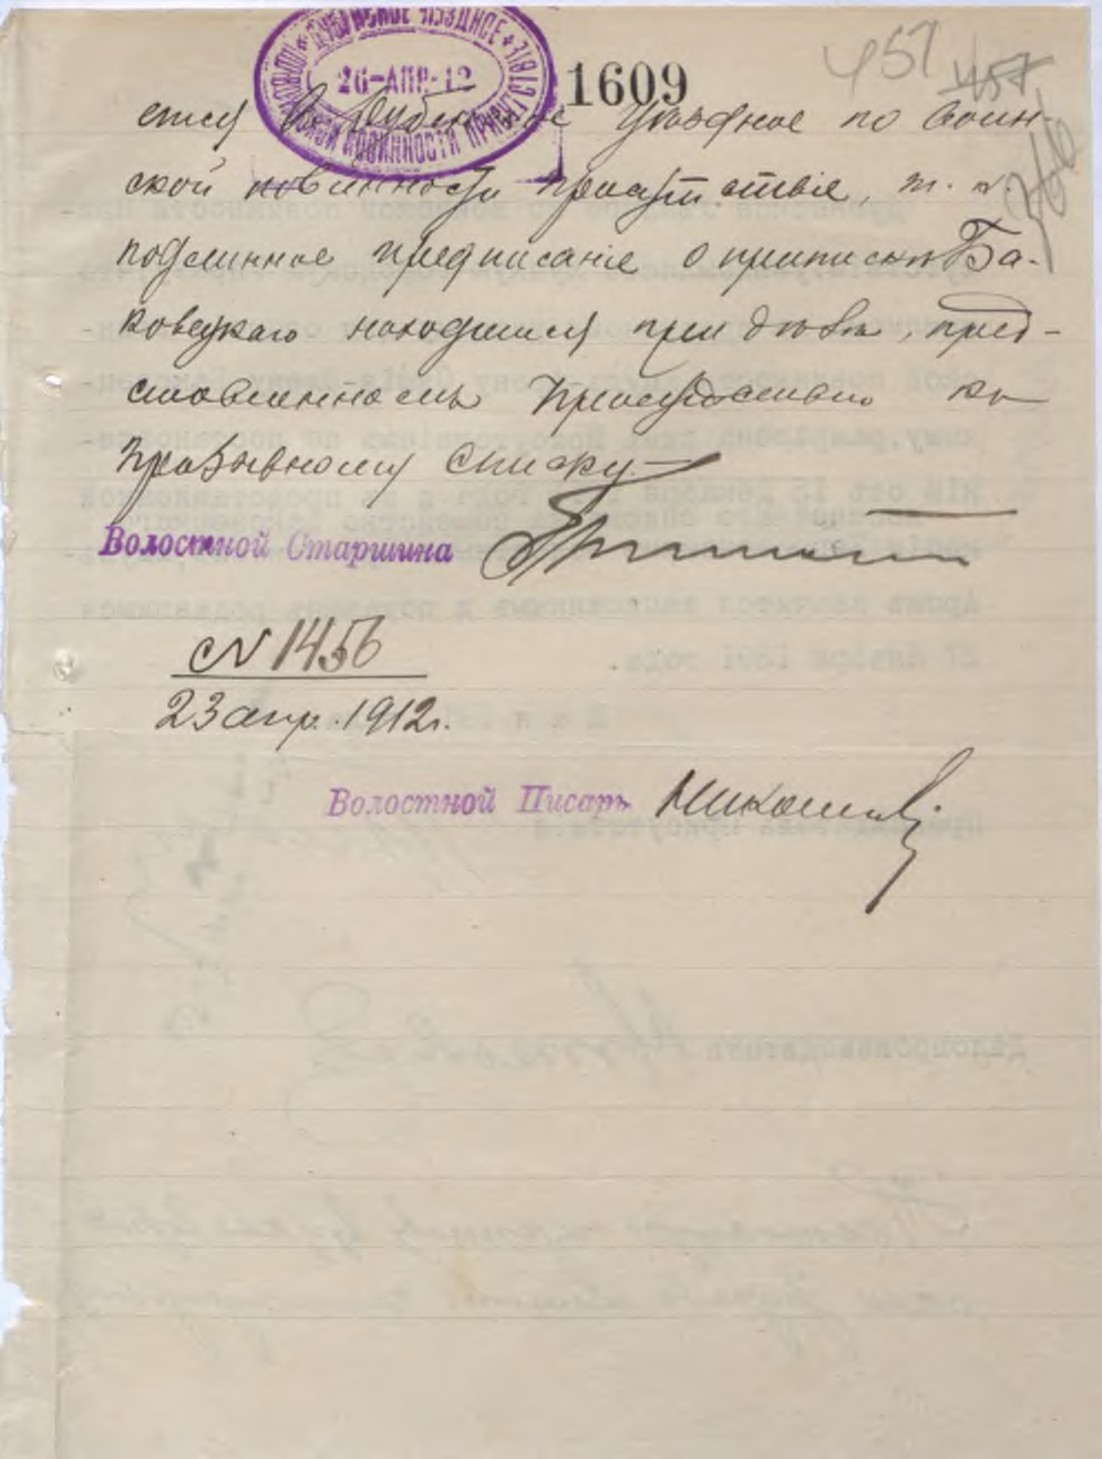 ДУБЕНСКОЕ УѢЗДНОЕ * ПО ВОИНСКОЙ ПОВИННОСТИ ПРИСУТСТВІЕ *
26-АПР-12
1609
457
457
ется въ Дубенское Уѣздное по воин-
ской повинности Присутствіе, т. к.
подлинное предписаніе о припискѣ Ба-
ковецкаго находится при дѣлѣ, пред-
ставленномъ Присутствію къ
призывному списку.
Волостной Старшина
№ 1456
23 апр. 1912 г.
Волостной Писарь